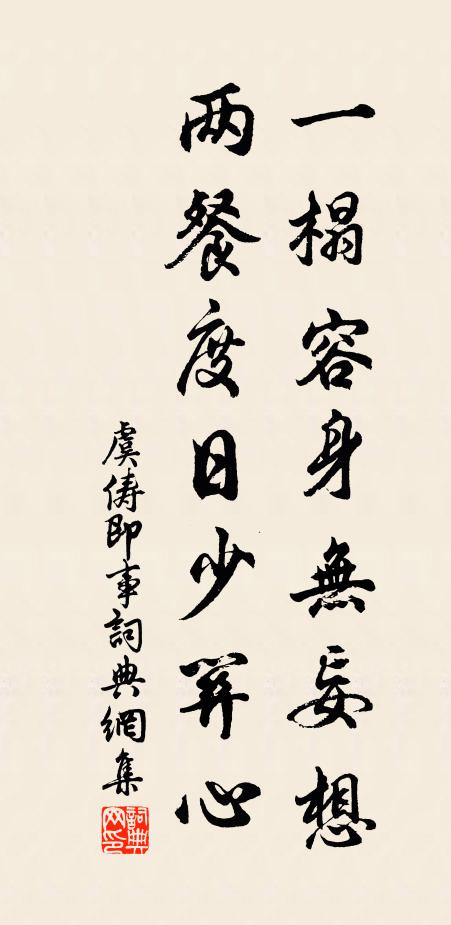 一榻容身無妄想
两餐度日少心
虞俦即事詞典網集
詞典网印